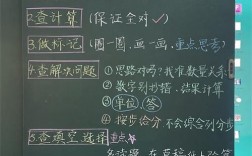 2.查计算（保证全对✓）
3.做标记（圈一圈,画一画,重点思考）
4.查解决问题 ① 思路对吗？找准数量关系
② 数字别抄错,结果计算
③ 单位、答
④ 按步给分 不会综合列分步
5.查填空、选择 重点